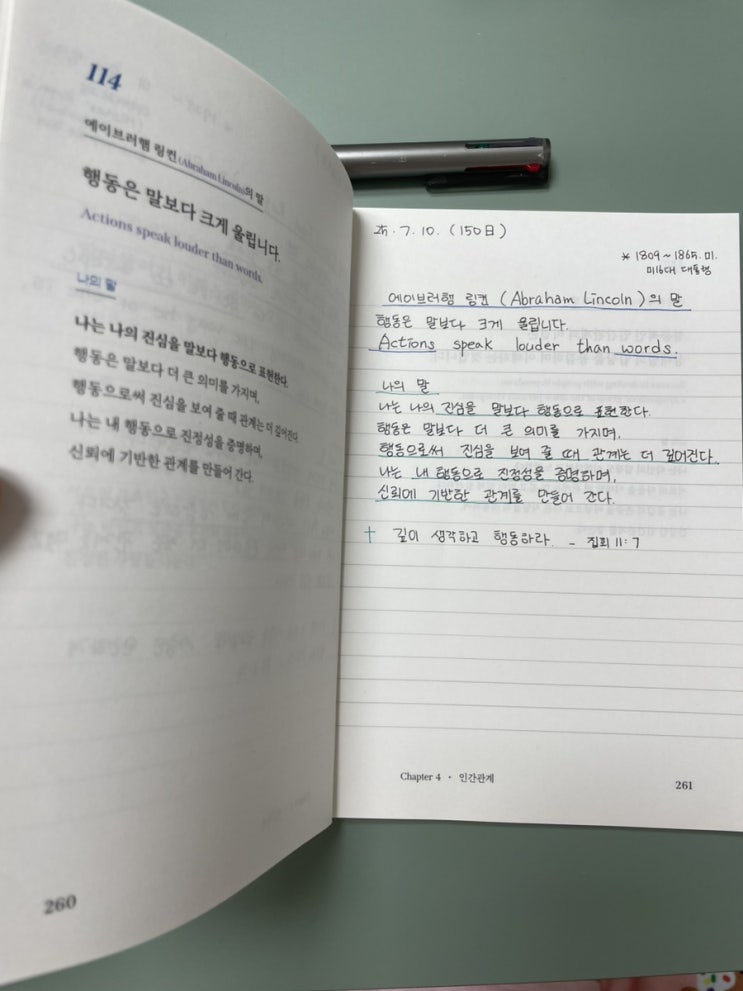 114
에이브러햄 링컨(Abraham Lincoln)의 말
행동은 말보다 크게 울립니다.
Actions speak louder than words.
나의 말
나는 나의 진심을 말보다 행동으로 표현한다.
행동은 말보다 더 큰 의미를 가지며,
행동으로써 진심을 보여 줄 때 관계는 더 깊어진다.
나는 내 행동으로 진정성을 증명하며,
신뢰에 기반한 관계를 만들어 간다.
260
25. 7. 10. (150日)
* 1809~1865. 미.
미16대 대통령
에이브러햄 링컨 (Abraham Lincoln)의 말
행동은 말보다 크게 울립니다.
Actions speak louder than words.
나의 말
나는 나의 진심을 말보다 행동으로 표현한다.
행동은 말보다 더 큰 의미를 가지며,
행동으로써 진심을 보여 줄 때 관계는 더 깊어진다.
나는 내 행동으로 진정성을 증명하며,
신뢰에 기반한 관계를 만들어 간다.
† 깊이 생각하고 행동하라. - 집회 11:7
Chapter 4 · 인간관계
261